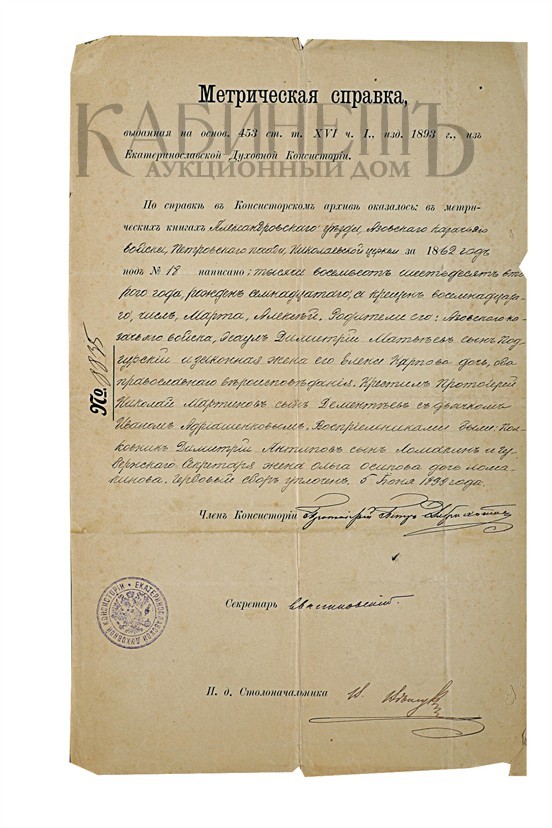 Метрическая справка,
КАБИНЕТЪ
АУКЦИОННЫЙ ДОМ
выданная на основ. 453 ст. т. XVI ч. I., изд. 1893 г., изъ
Екатеринославской Духовной Консисторіи.
По справкѣ въ Консисторскомъ архивѣ оказалось: въ метри-
ческихъ книгахъ Александровскаго уѣзда, Азовскаго казачьяго
войска, Петровскаго посада, Николаевской церкви за 1862 годъ
подъ № 18 написано: тысяча восемьсотъ шестьдесятъ вто-
рого года, рожденъ семнадцатаго, а крещенъ восемнадцата-
го, числъ, Марта, Алексѣй. Родители его: Азовскаго ка-
зачьяго войска, Эсаулъ Димитрій Матвѣевъ сынъ Под-
гурскій и законная жена его Елена Карпова дочь, оба
православнаго вѣроисповѣданія. Крестилъ Протоіерей
Николай Мартиновъ сынъ Дементьевъ съ дьячкомъ
Иваномъ Адріаненковымъ. Воспріемниками были: Пол-
ковникъ Димитрій Антиповъ сынъ Ломакинъ и Гу-
бернскаго Секретаря жена Ольга Осипова дочь Лома-
кинова. Гербовый сборъ уплоченъ. 5 1899 года.
№ 8835
Членъ Консисторіи Протоіерей Петръ
ЕКАТЕРИНОСЛАВСКОЙ ДУХОВНОЙ КОНСИСТОРІИ
Секретарь
И. д. Столоначальника